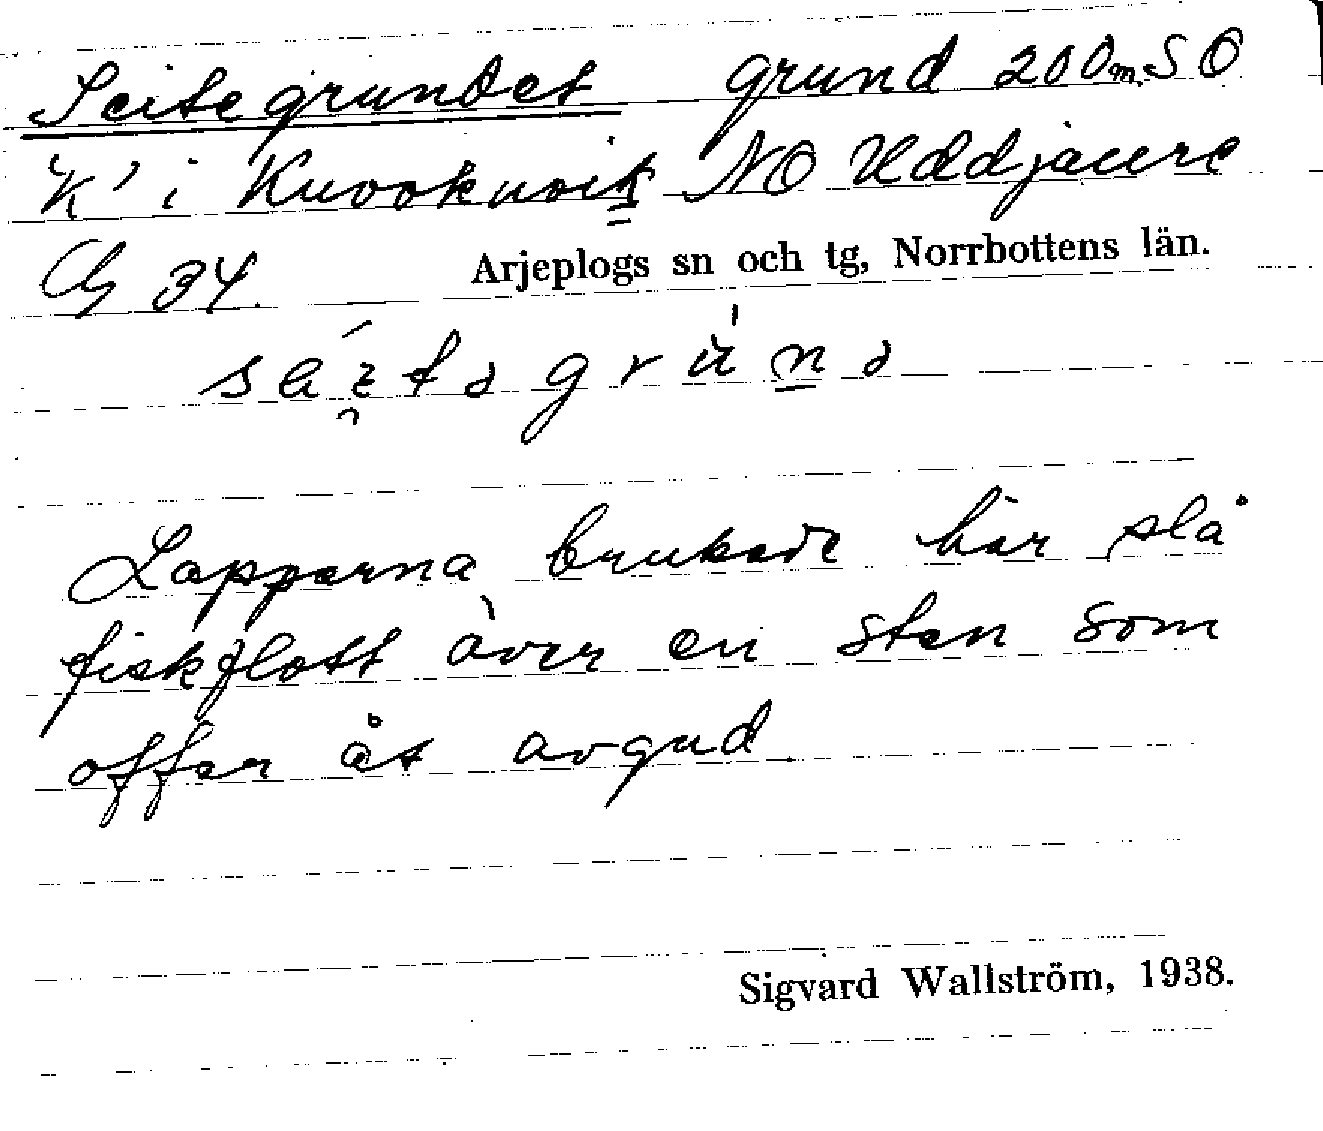 Seitegrundet grund 200 m SO
"K" i Kuvoknoik NO Uddjaure
Cg 34. Arjeplogs sn och tg, Norrbottens län.
Lapparna brukade här slå
fiskflott över en sten som
offer åt avgud
Sigvard Wallström, 1938.